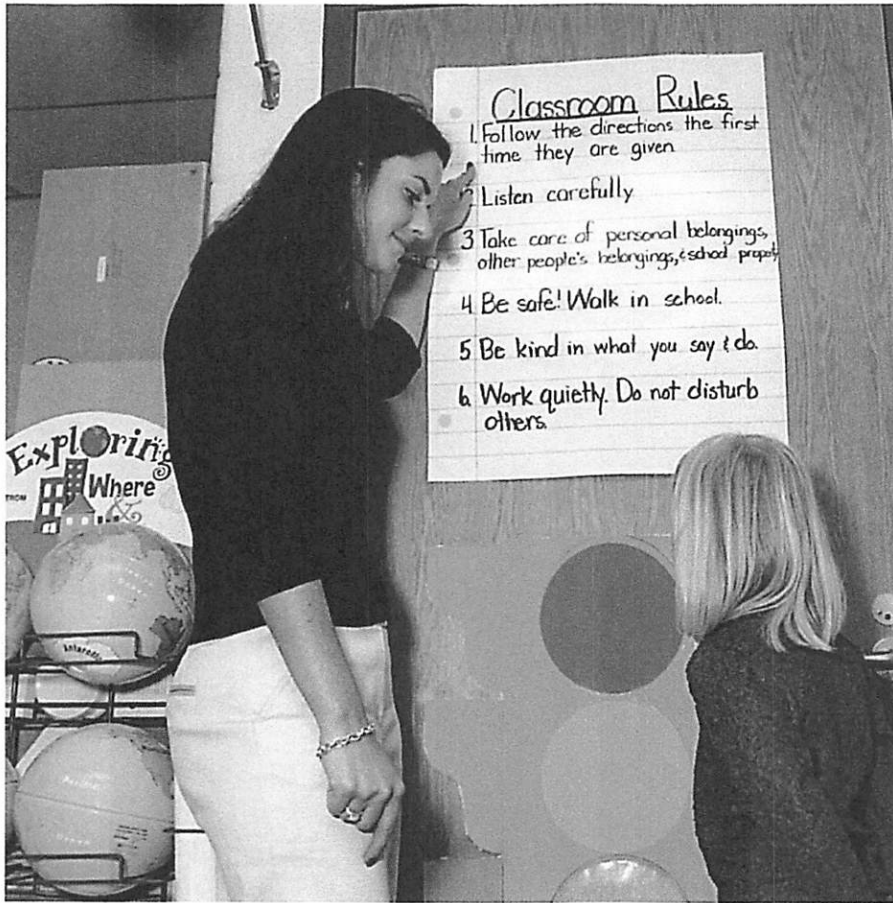 Classroom Rules
1. Follow the directions the first
time they are given
Listen carefully
3 Take care of personal belongings,
other people's belongings, & school property
4 Be safe! Walk in school.
5 Be kind in what you say & do.
6. Work quietly. Do not disturb
others.
Exploring
Where
&